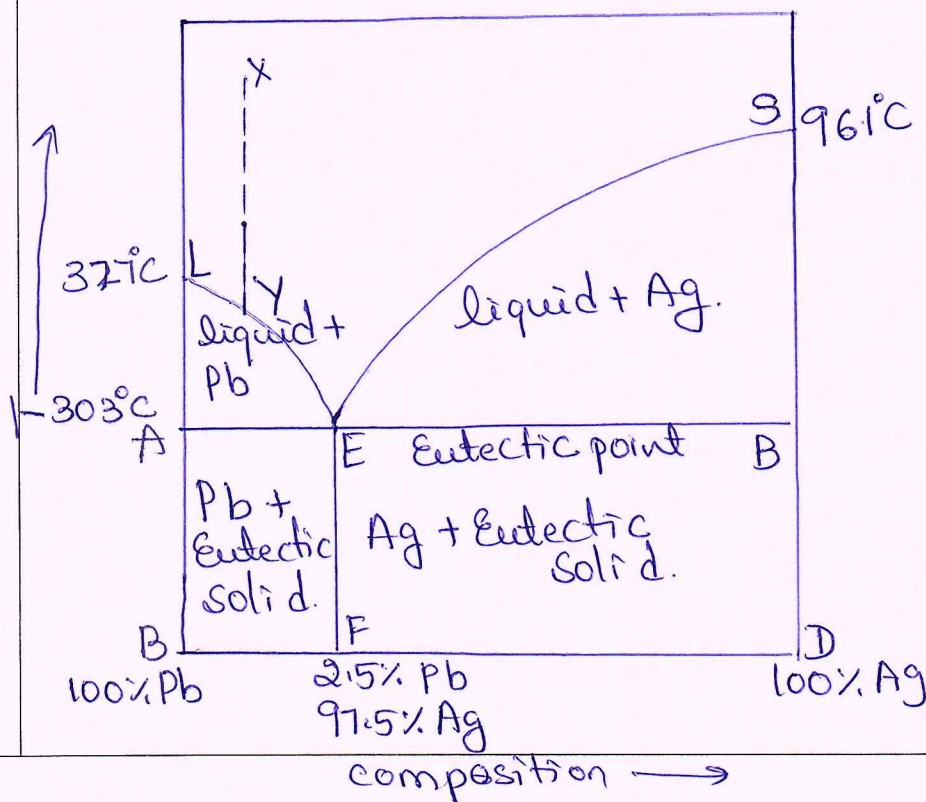 X
S 961°C
327°C L
Y
liquid +
Pb
liquid + Ag.
303°C
A
E Eutectic point B
Pb +
Eutectic
solid.
Ag + Eutectic
solid.
B
F
D
100% Pb
2.5% Pb
97.5% Ag
100% Ag
composition